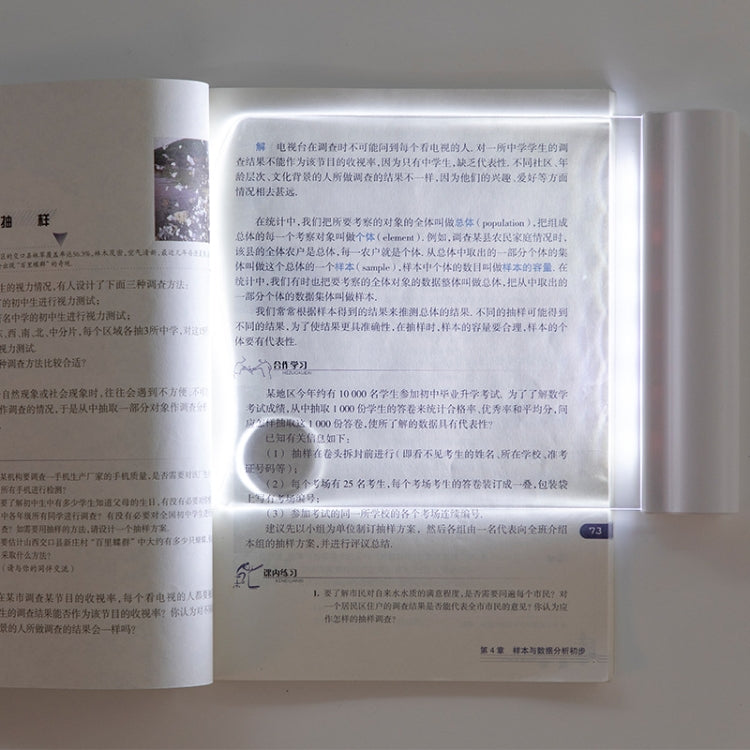 抽 样
生的视力情况,有人设计了下面三种调查方法:
的初中生进行视力测试;
名中学的初中生进行视力测试;
东、西、南、北、中分片,每个区域各抽3所中学,对这
视力测试.
种调查方法比较合适?
自然现象或社会现象时,往往会遇到不方便、不
作调查的情况,于是从中抽取一部分对象作调查分析
某机构要调查一手机生产厂家的手机质量,是否需要对
所有手机进行检测?
要了解初中生中有多少学生知道父母的生日,有没有必要对
中各年级所有同学进行调查?有没有必要对全国初中学生进
查?如需要用抽样的方法,请设计一个抽样方案.
要估计山西交口县新庄村“百里蝶群”中大约有多少只蝴蝶,
采取什么方法?
(请与你的同伴交流)
在某市调查某节目的收视率,每个看电视的人都要
生的调查结果能否作为该节目的收视率?你认为对不
景的人所做调查的结果会一样吗?
解 电视台在调查时不可能问到每个看电视的人.对一所中学学生的调
查结果不能作为该节目的收视率,因为只有中学生,缺乏代表性.不同社区、年
龄层次、文化背景的人所做调查的结果不一样,因为他们的兴趣、爱好等方面
情况相去甚远.
在统计中,我们把所要考察的对象的全体叫做总体(population),把组成
总体的每一个考察对象叫做个体(element).例如,调查某县农民家庭情况时,
该县的全体农户是总体,每一农户就是个体.从总体中取出的一部分个体的集
体叫做这个总体的一个样本(sample),样本中个体的数目叫做样本的容量.在
统计中,我们有时也把要考察的全体对象的数据整体叫做总体,把从中取出的
一部分个体的数据集体叫做样本.
我们常常根据样本得到的结果来推测总体的结果.不同的抽样可能得到
不同的结果,为了使结果更具准确性,在抽样时,样本的容量要合理,样本的个
体要有代表性.
合作学习
HEZUOXUEXI
某地区今年约有10 000名学生参加初中毕业升学考试.为了了解数学
考试成绩,从中抽取1 000份学生的答卷来统计合格率、优秀率和平均分,问
应怎样抽取这1 000份答卷,使所了解的数据具有代表性?
已知有关信息如下:
(1)抽样在卷头拆封前进行(即看不见考生的姓名、所在学校、准考
证号码等);
(2)每个考场有25名考生,每个考场考生的答卷装订成一叠,包装袋
上写有考场编号;
(3)参加考试的同一所学校的各个考场连续编号.
建议先以小组为单位制订抽样方案,然后各组由一名代表向全班介绍
本组的抽样方案,并进行评议总结.
73
课内练习
KENEILIANXI
1. 要了解市民对自来水水质的满意程度,是否需要问遍每个市民?对
一个居民区住户的调查结果是否能代表全市市民的意见?你认为应
作怎样的抽样调查?
第4章 样本与数据分析初步